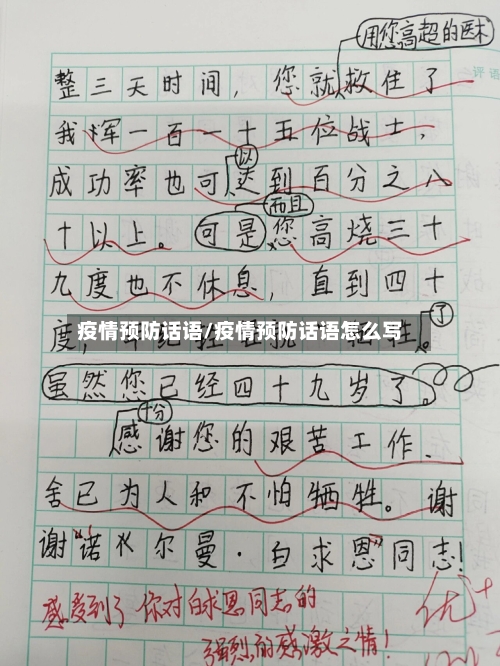 用您高超的医术
评语
整三天时间，您就救住了
我挥一百一十五位战士，
以
成功率也可达到百分之八
而且
十以上。可是您高烧三十
九度也不休息，直到四十
了
度，
疫情预防话语/疫情预防话语怎么写
虽然您已经四十九岁了。
十分
感谢您的艰苦工作、
舍已为人和不怕牺牲。谢
谢“诺尔曼·白求恩”同志！
感受到了你对白求恩同志的
强烈的感激之情！
优+